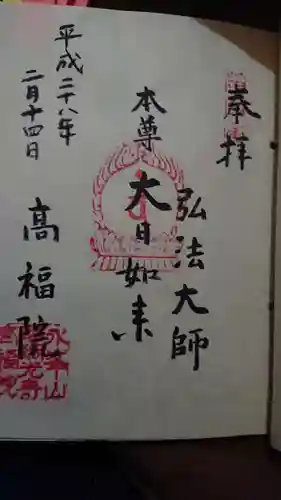 奉拝
弘法大師
本尊
大日如来
平成二十八年
二月十四日
高福院